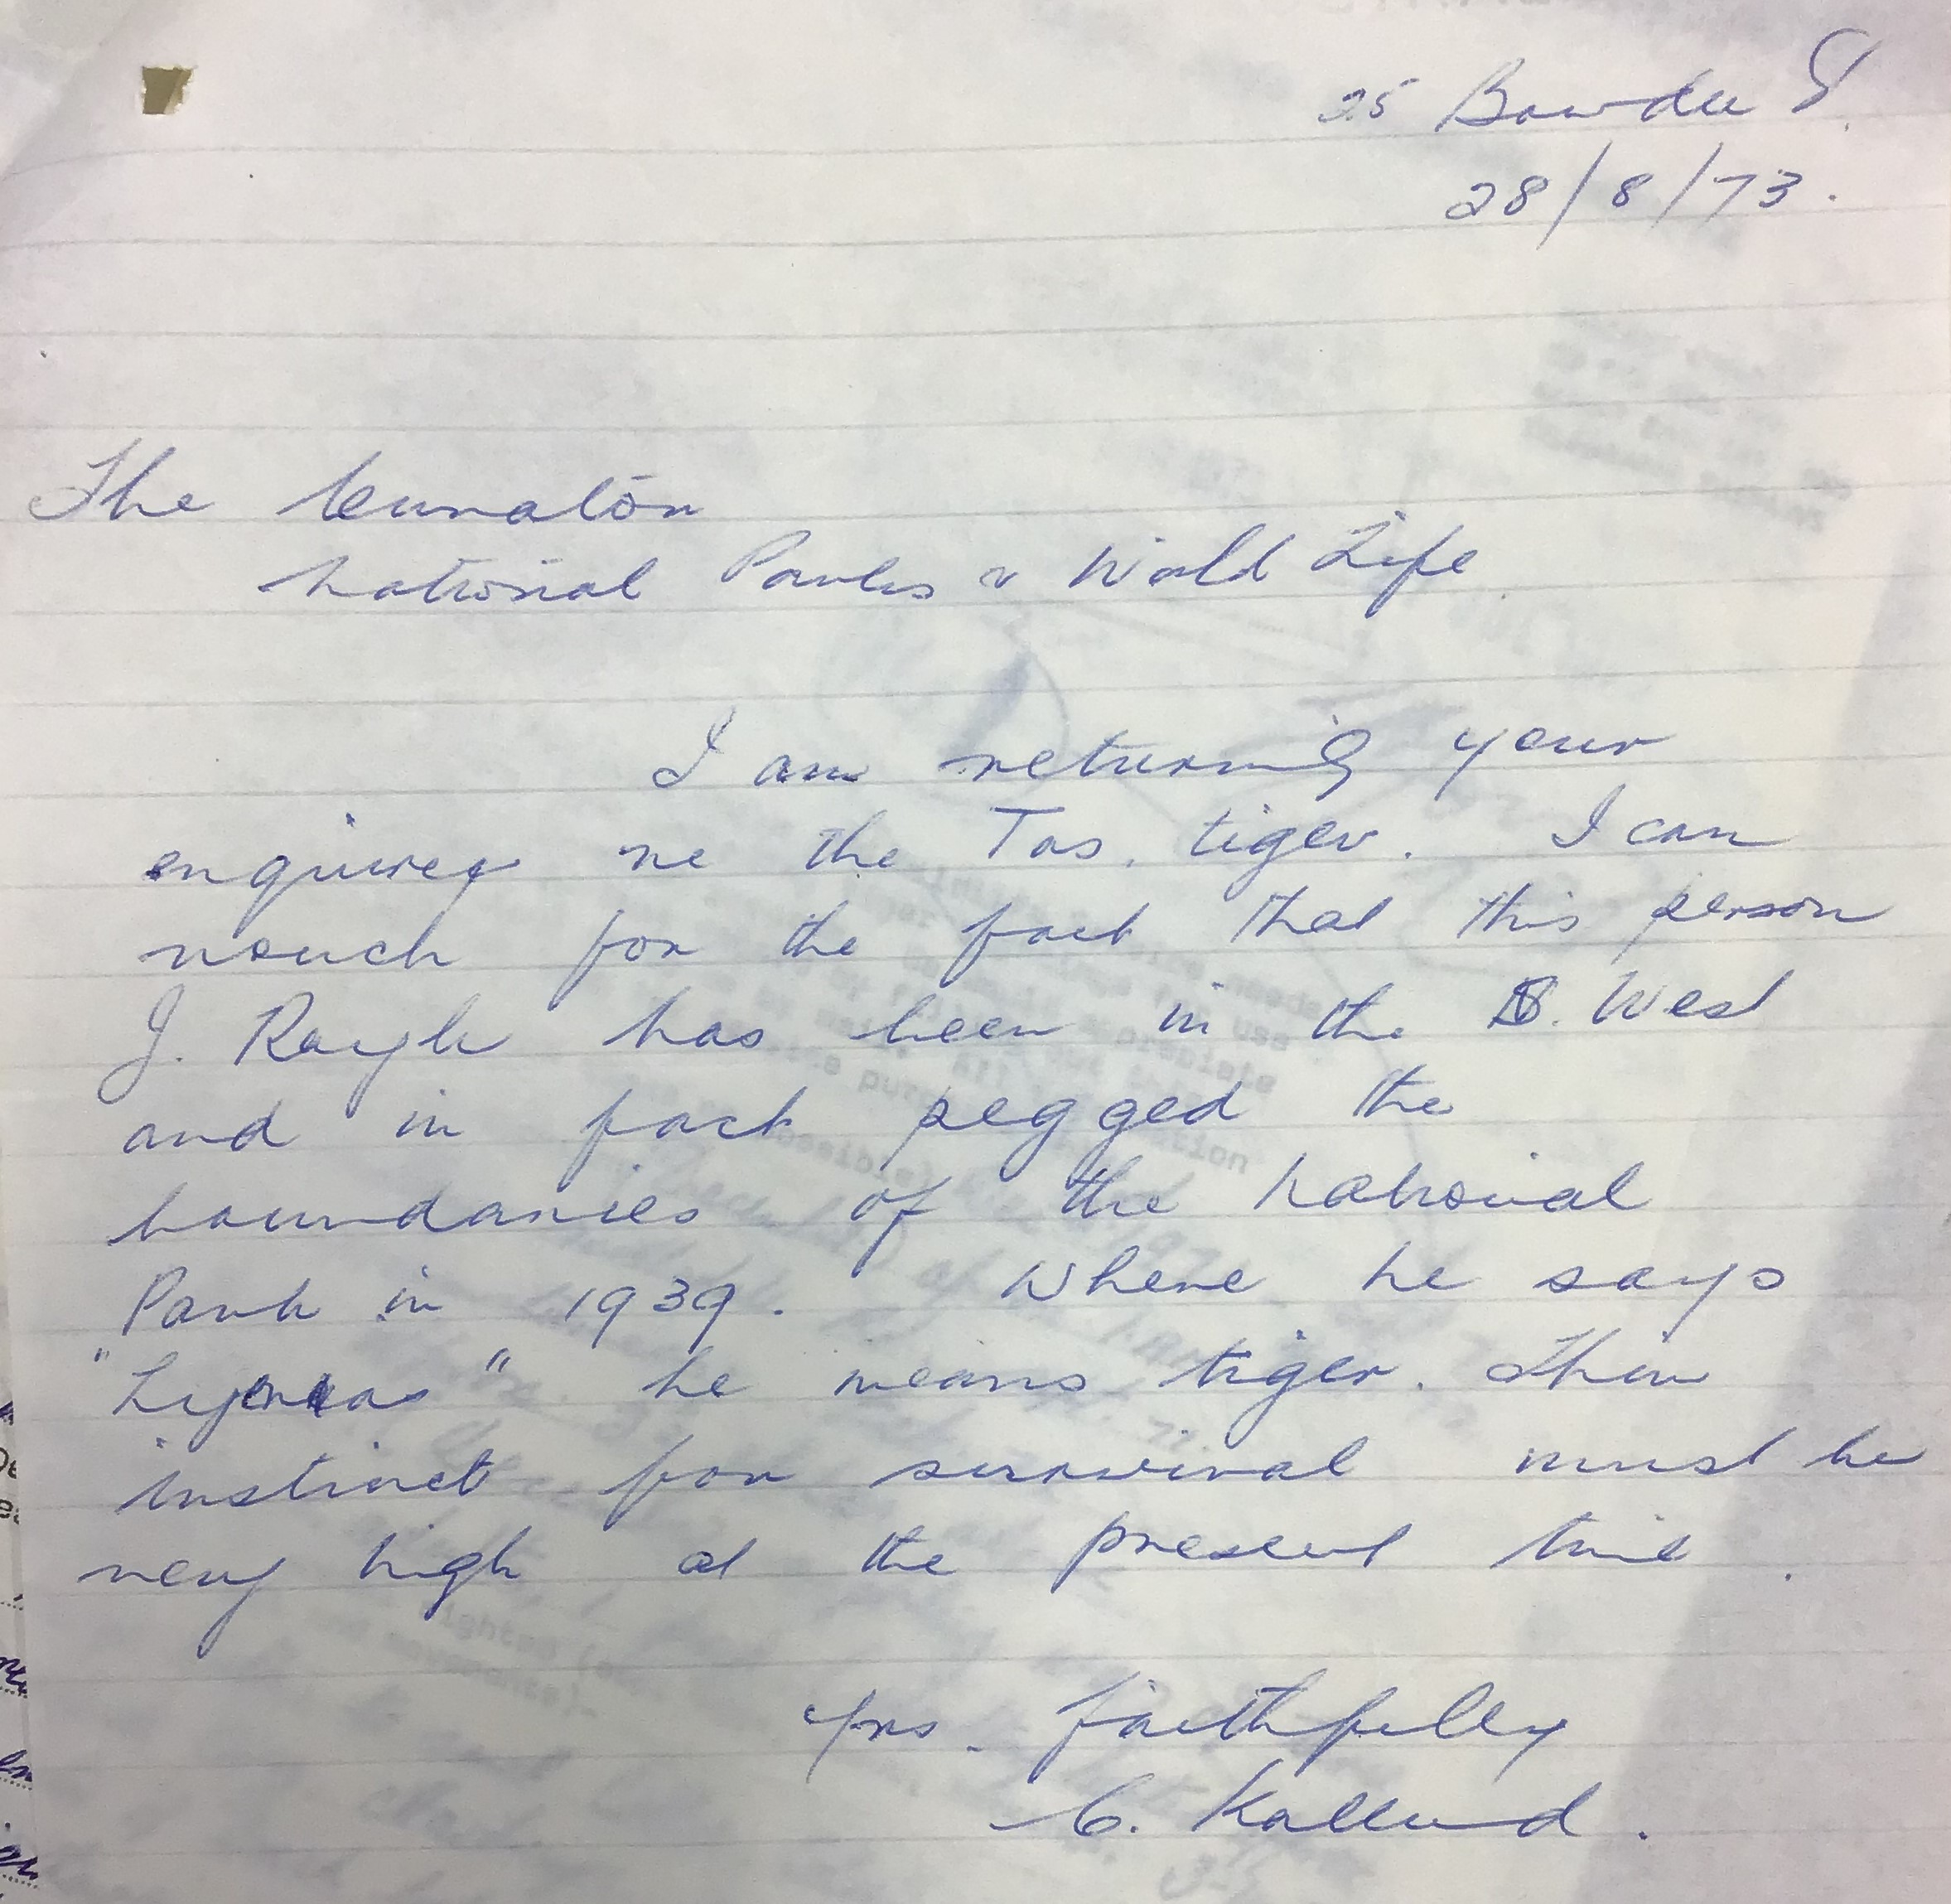 25 Bowden St.
28/8/73.
The Curator
National Parks & Wild Life
I am returning your
enquirey re the Tas. tiger. I can
vouch for the fact that this person
J. has been in the S. West
and in fact pegged the
boundaries of the National
Park in 1939. Where he says
"Hyenas" he means tiger. Their
instinct for survival must be
very high at the present time.
Yrs. faithfully